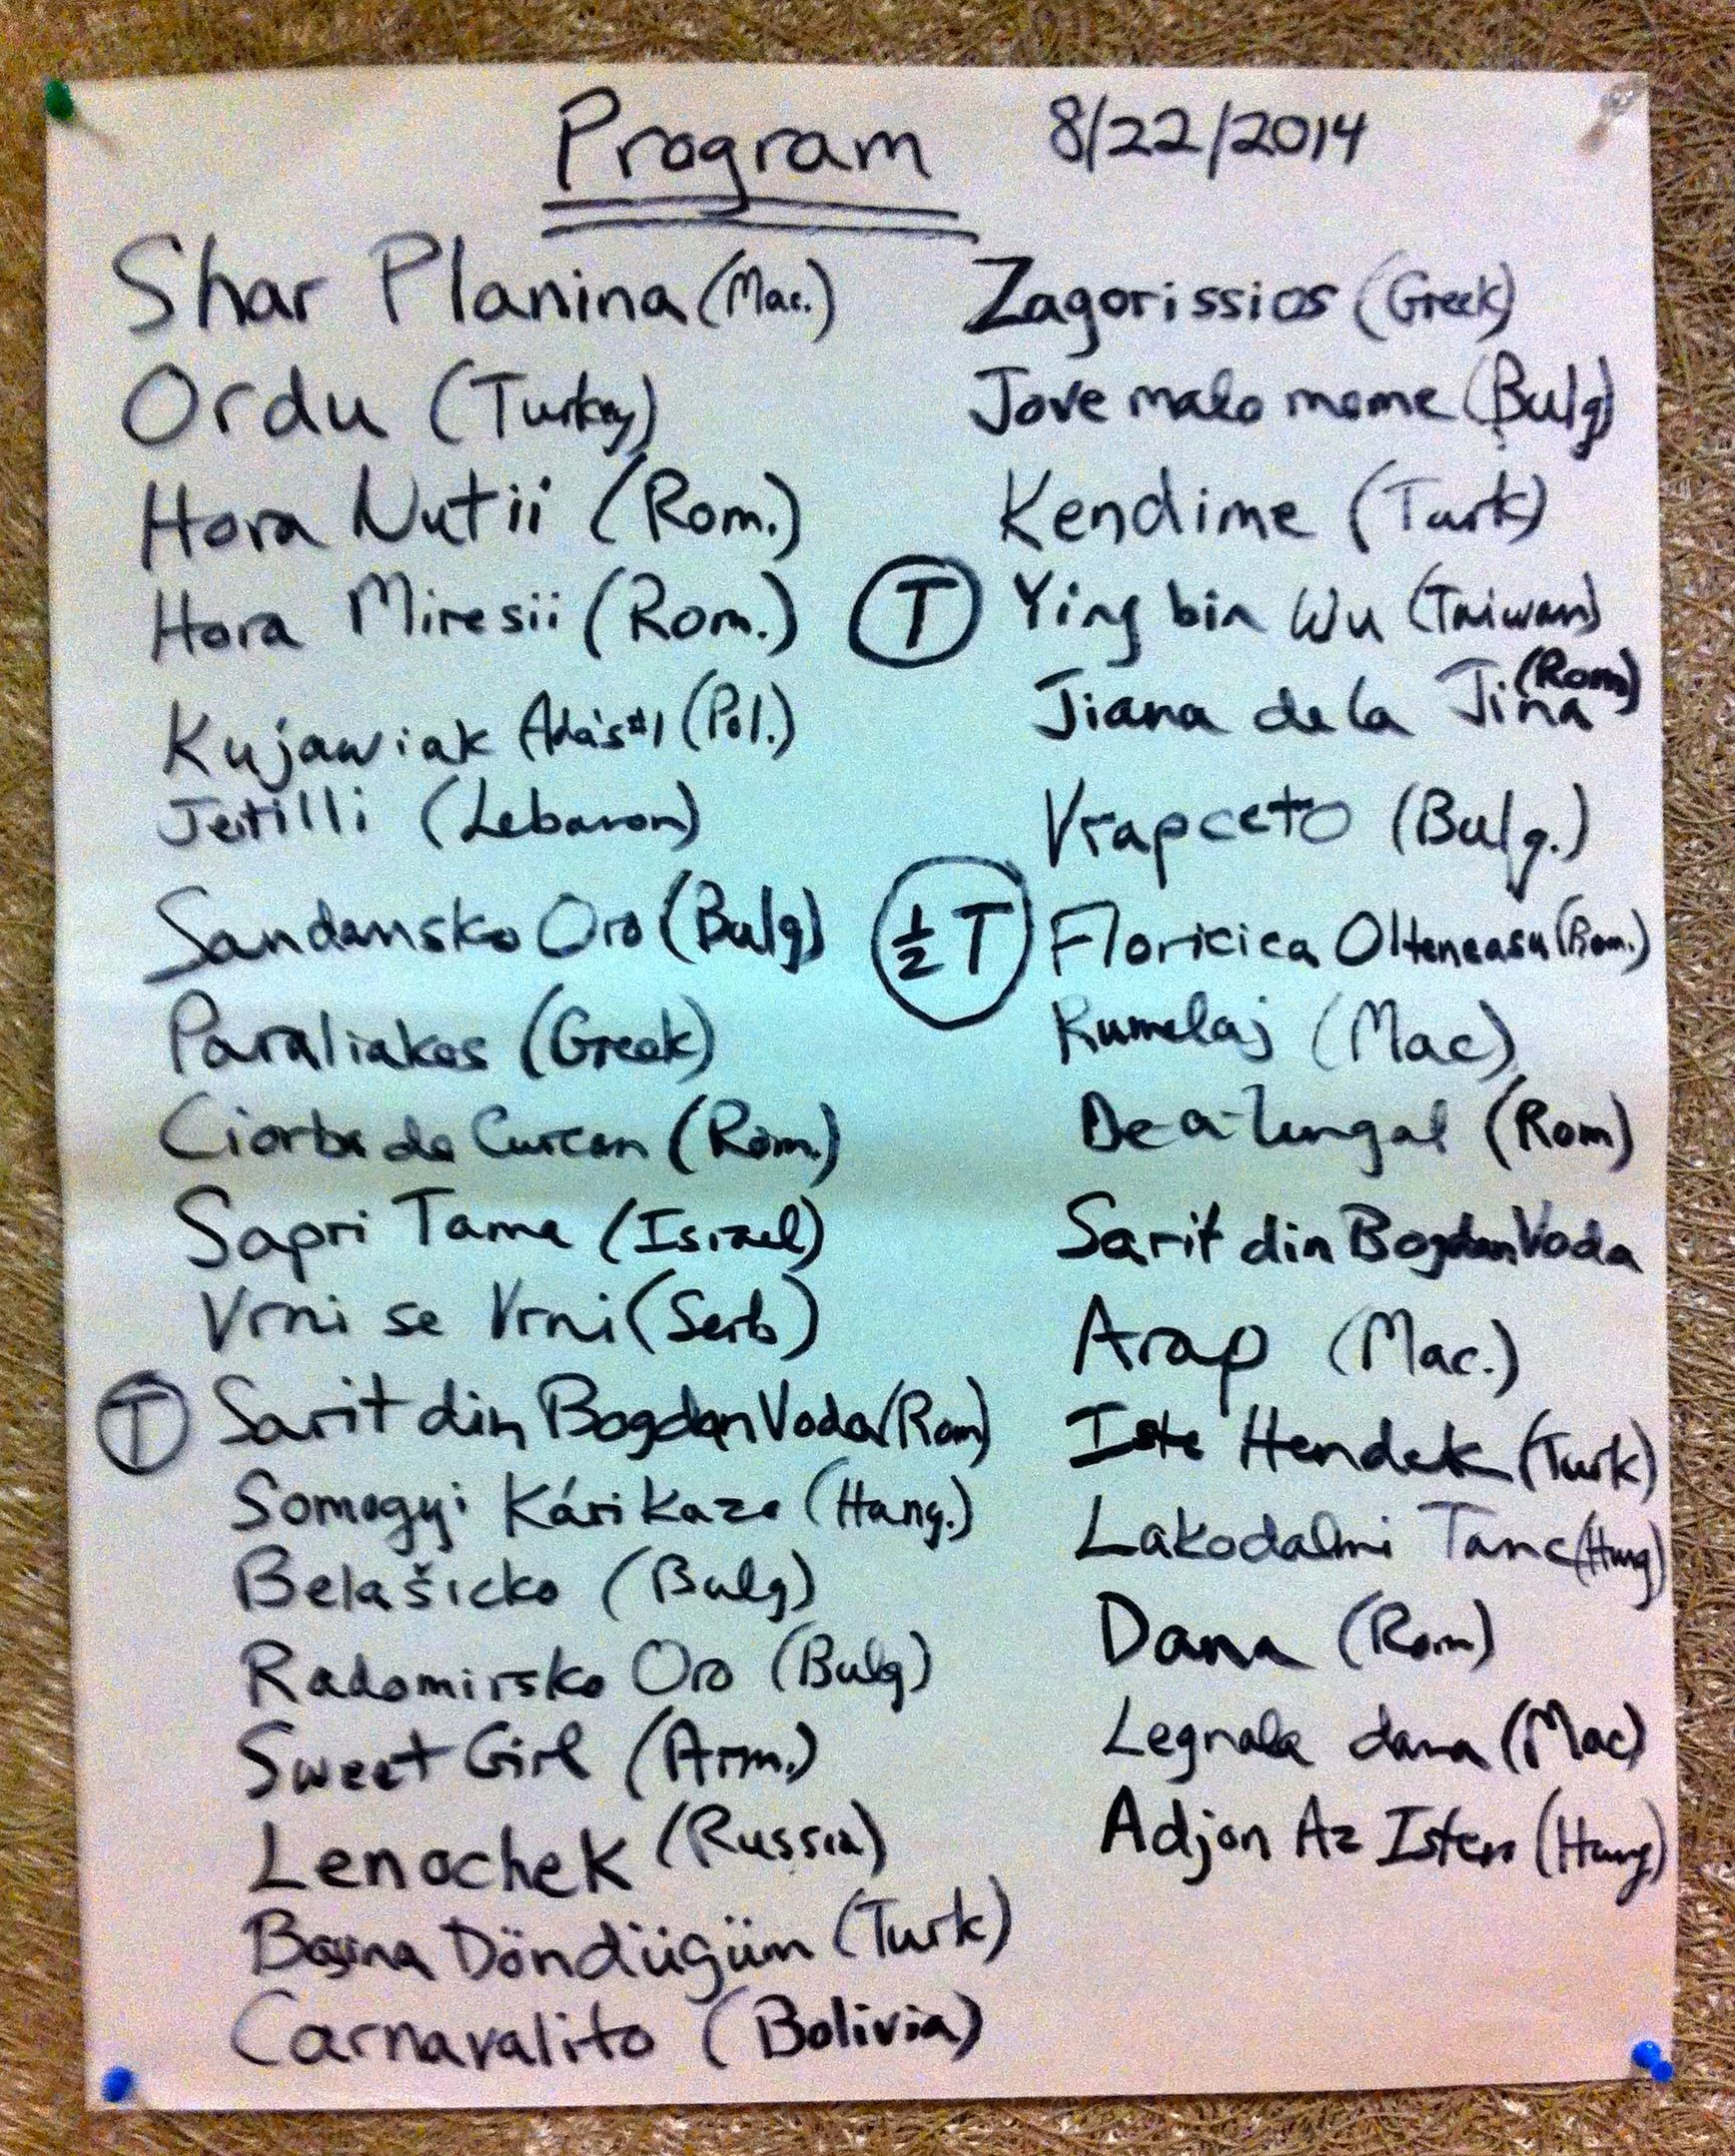 Program 8/22/2014
Shar Planina (Mac.)
Ordu (Turkey)
Hora Nutii (Rom.)
Hora Miresii (Rom.)
Kujawiak Ada's #1 (Pol.)
Jeitilli (Lebanon)
Sandansko Oro (Bulg)
Paraliakos (Greek)
Ciorba de Curcan (Rom.)
Sapri Tama (Israel)
Vrni se Vrni (Serb)
T Sarit din Bogdan Voda (Rom)
Somogyi Kárikazo (Hung.)
Belašicko (Bulg)
Radomirsko Oro (Bulg)
Sweet Girl (Arm.)
Lenochek (Russia)
Başına Döndüğüm (Turk)
Carnavalito (Bolivia)
Zagorissios (Greek)
Jove malo mome (Bulg)
Kendime (Turk)
T Ying bin Wu (Taiwan)
Jiana de la Jina (Rom)
Vrapceto (Bulg.)
½ T Floricica Olteneasu (Rom.)
Rumelaj (Mac)
De-a-lungul (Rom)
Sarit din Bogdan Voda
Arap (Mac.)
Iste Hendek (Turk)
Lakodalmi Tanc (Hung)
Dana (Rom)
Legnala dana (Mac)
Adjon Az Isten (Hung)